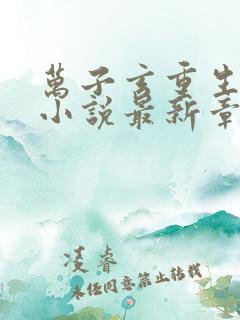 萬子言重生
小說最新章
凌睿
未經同意禁止轉載